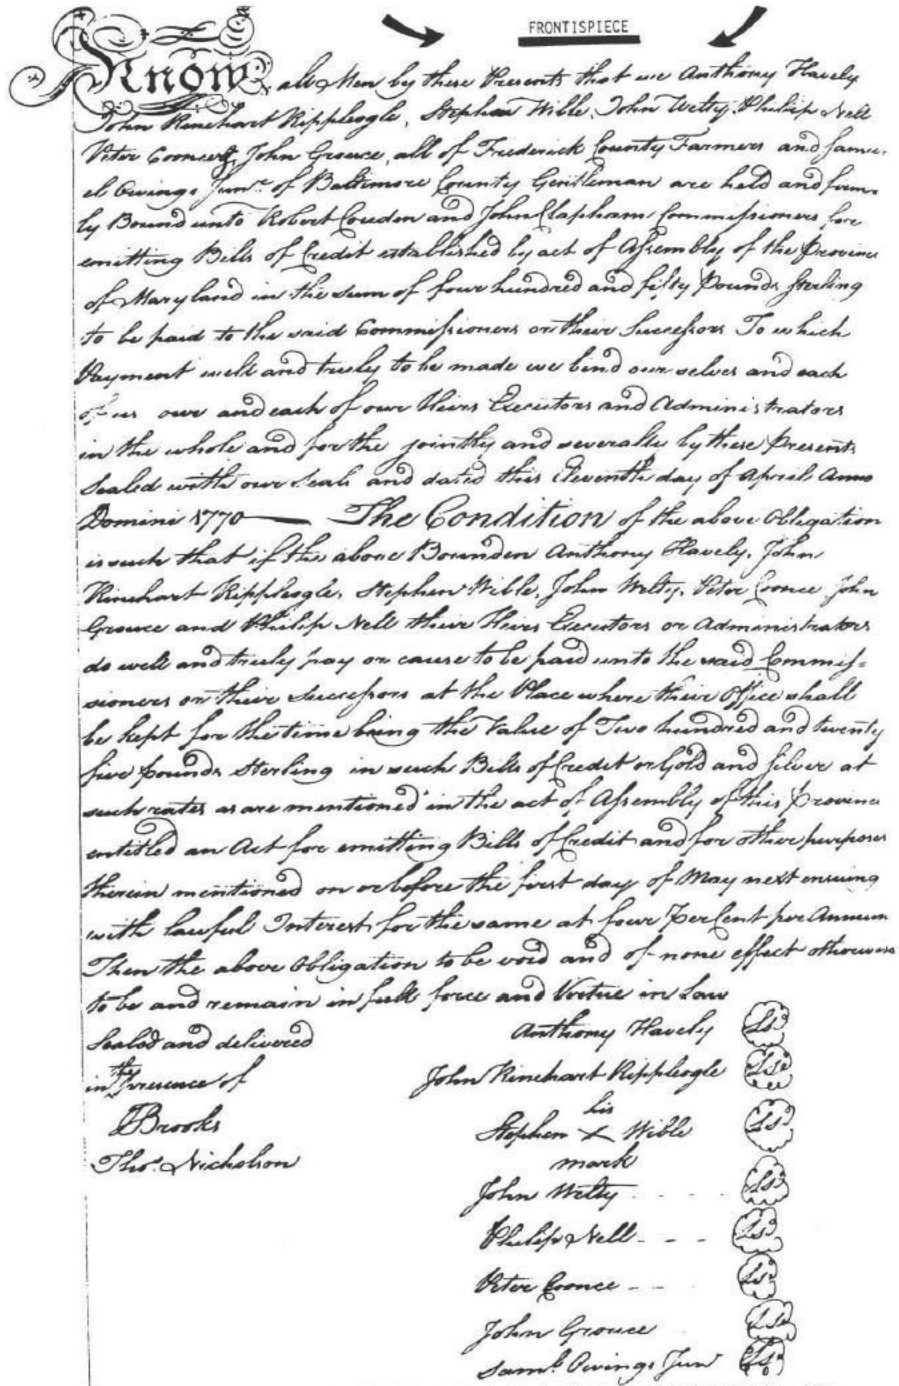 FRONTISPIECE
Know all Men by these Presents that we Anthony Havely
John Rinehart Rippleogle, Stephen Wible, John Welty, Philip Nell
Peter Coonce, John Grouce, all of Frederick County Farmers and Samu-
el Owings Junr. of Baltimore County Gentleman are held and firm-
ly Bound unto Robert Couden and John Clapham Commissioners for
emitting Bills of Credit established by act of Assembly of the Province
of Maryland in the sum of four hundred and fifty Pounds Sterling
to be paid to the said Commissioners or their Successors To which
Payment well and truly to be made we bind our selves and each
of us our and each of our Heirs Executors and Administrators
in the whole and for the jointly and severally by these Presents
Sealed with our Seals and dated this Eleventh day of April Anno
Domini 1770 — The Condition of the above Obligation
is such that if the above Bounden Anthony Havely, John
Rinehart Rippleogle, Stephen Wible, John Welty, Peter Coonce John
Grouce and Philip Nell their Heirs Executors or Administrators
do well and truly pay or cause to be paid unto the said Commis=
sioners or their Successors at the Place where their Office shall
be kept for the time being the Value of Two hundred and twenty
five pounds Sterling in such Bills of Credit or Gold and Silver at
such rates as are mentioned in the act of Assembly of this Province
entitled an Act for emitting Bills of Credit and for other purposes
therein mentioned on or before the first day of May next ensuing
with lawful Interest for the same at four Per Cent per Annum
Then the above Obligation to be void and of none effect otherwise
to be and remain in full force and Virtue in Law
Sealed and delivered
in the presence of
Brooks
Thos. Nicholson
Anthony Havely LS
John Rinehart Rippleogle LS
his
Stephen X Wible LS
mark
John Welty - - - - LS
Philip Nell - - - LS
Peter Coonce - - - LS
John Grouce LS
Saml. Owings Junr LS